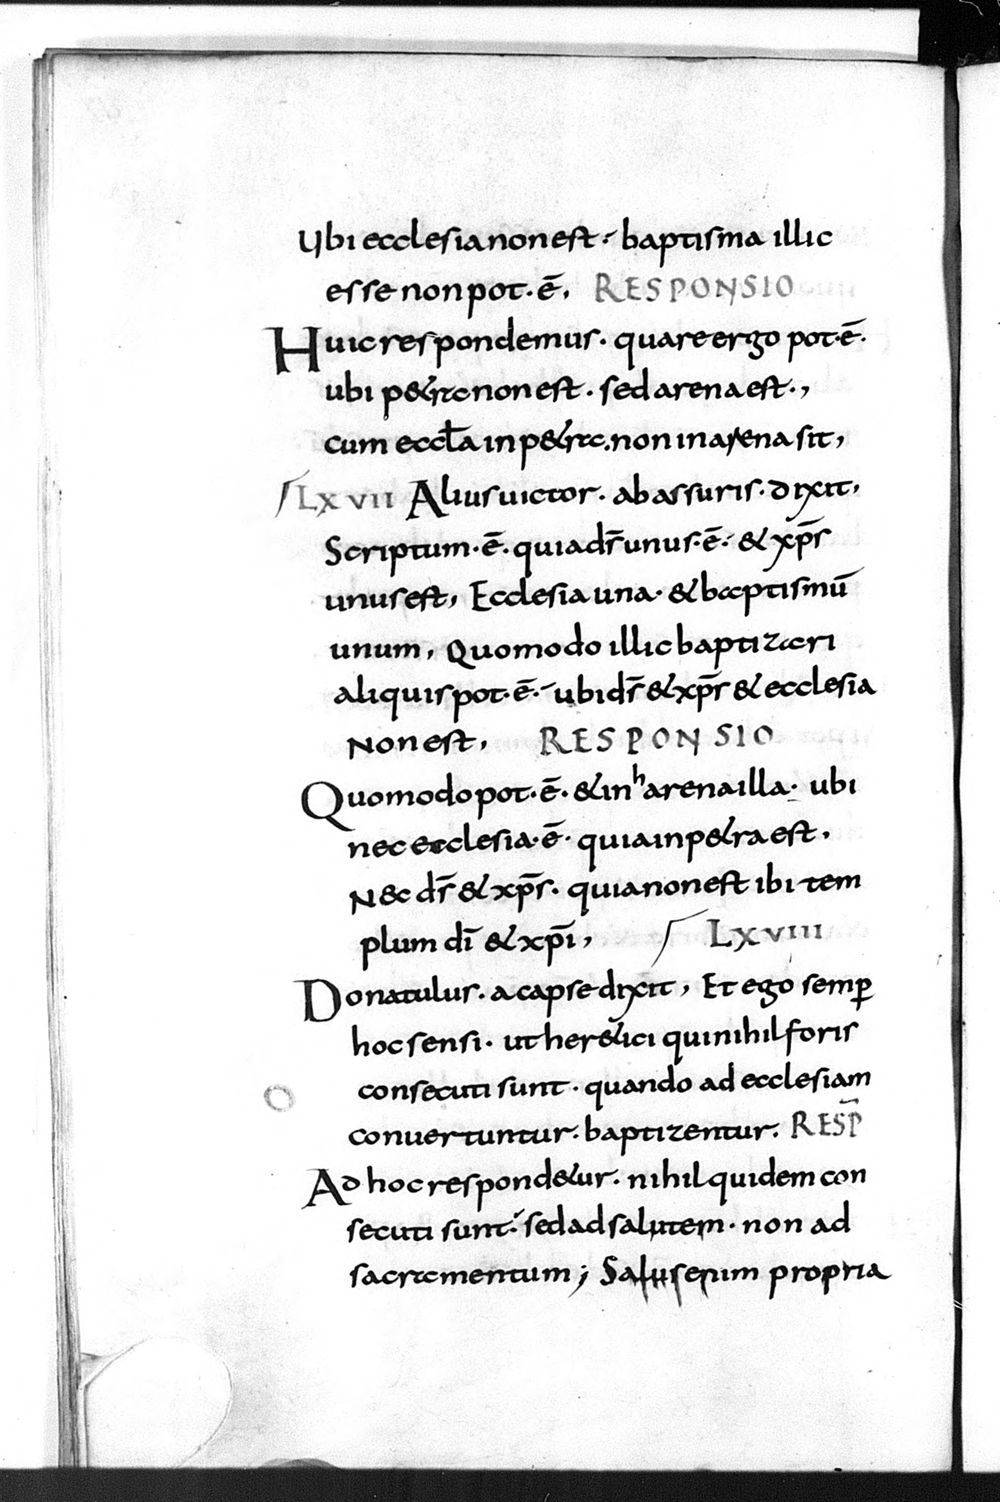 Ubi ecclesia non est· baptisma illic
esse non pot· ē, RESPONSIO
Huic respondemus· quare ergo pot· ē·
ubi p&ra non est· sed arena est·,
cum eccła in p&ra. non in arena sit,
LXVII Alius uictor· ab assuris· dixit,
Scriptum· ē· quia ds̄ unus· ē· & xp̄s
unus est, Ecclesia una· & baptismū
unum, Quomodo illic baptizari
aliquis pot· ē· ubi ds̄ & xp̄s & ecclesia
Non est, RESPONSIO
Quomodo pot· ē· & in harena illa· ubi
nec ecclesia· ē· quia in p&ra est,
N&c ds̄ & xp̄s· quia non est ibi tem
plum dī & xp̄ī, LXVIII
Donatulus· a capse dixit, Et ego semꝑ
hoc sensi· ut her&ici qui nihil foris
consecuti sunt· quando ad ecclesiam
conuertuntur· baptizentur. RESP̄
Ad hoc respond&ur· nihil quidem con
secuti sunt· sed ad salutem· non ad
sacramentum; Salus enim propria